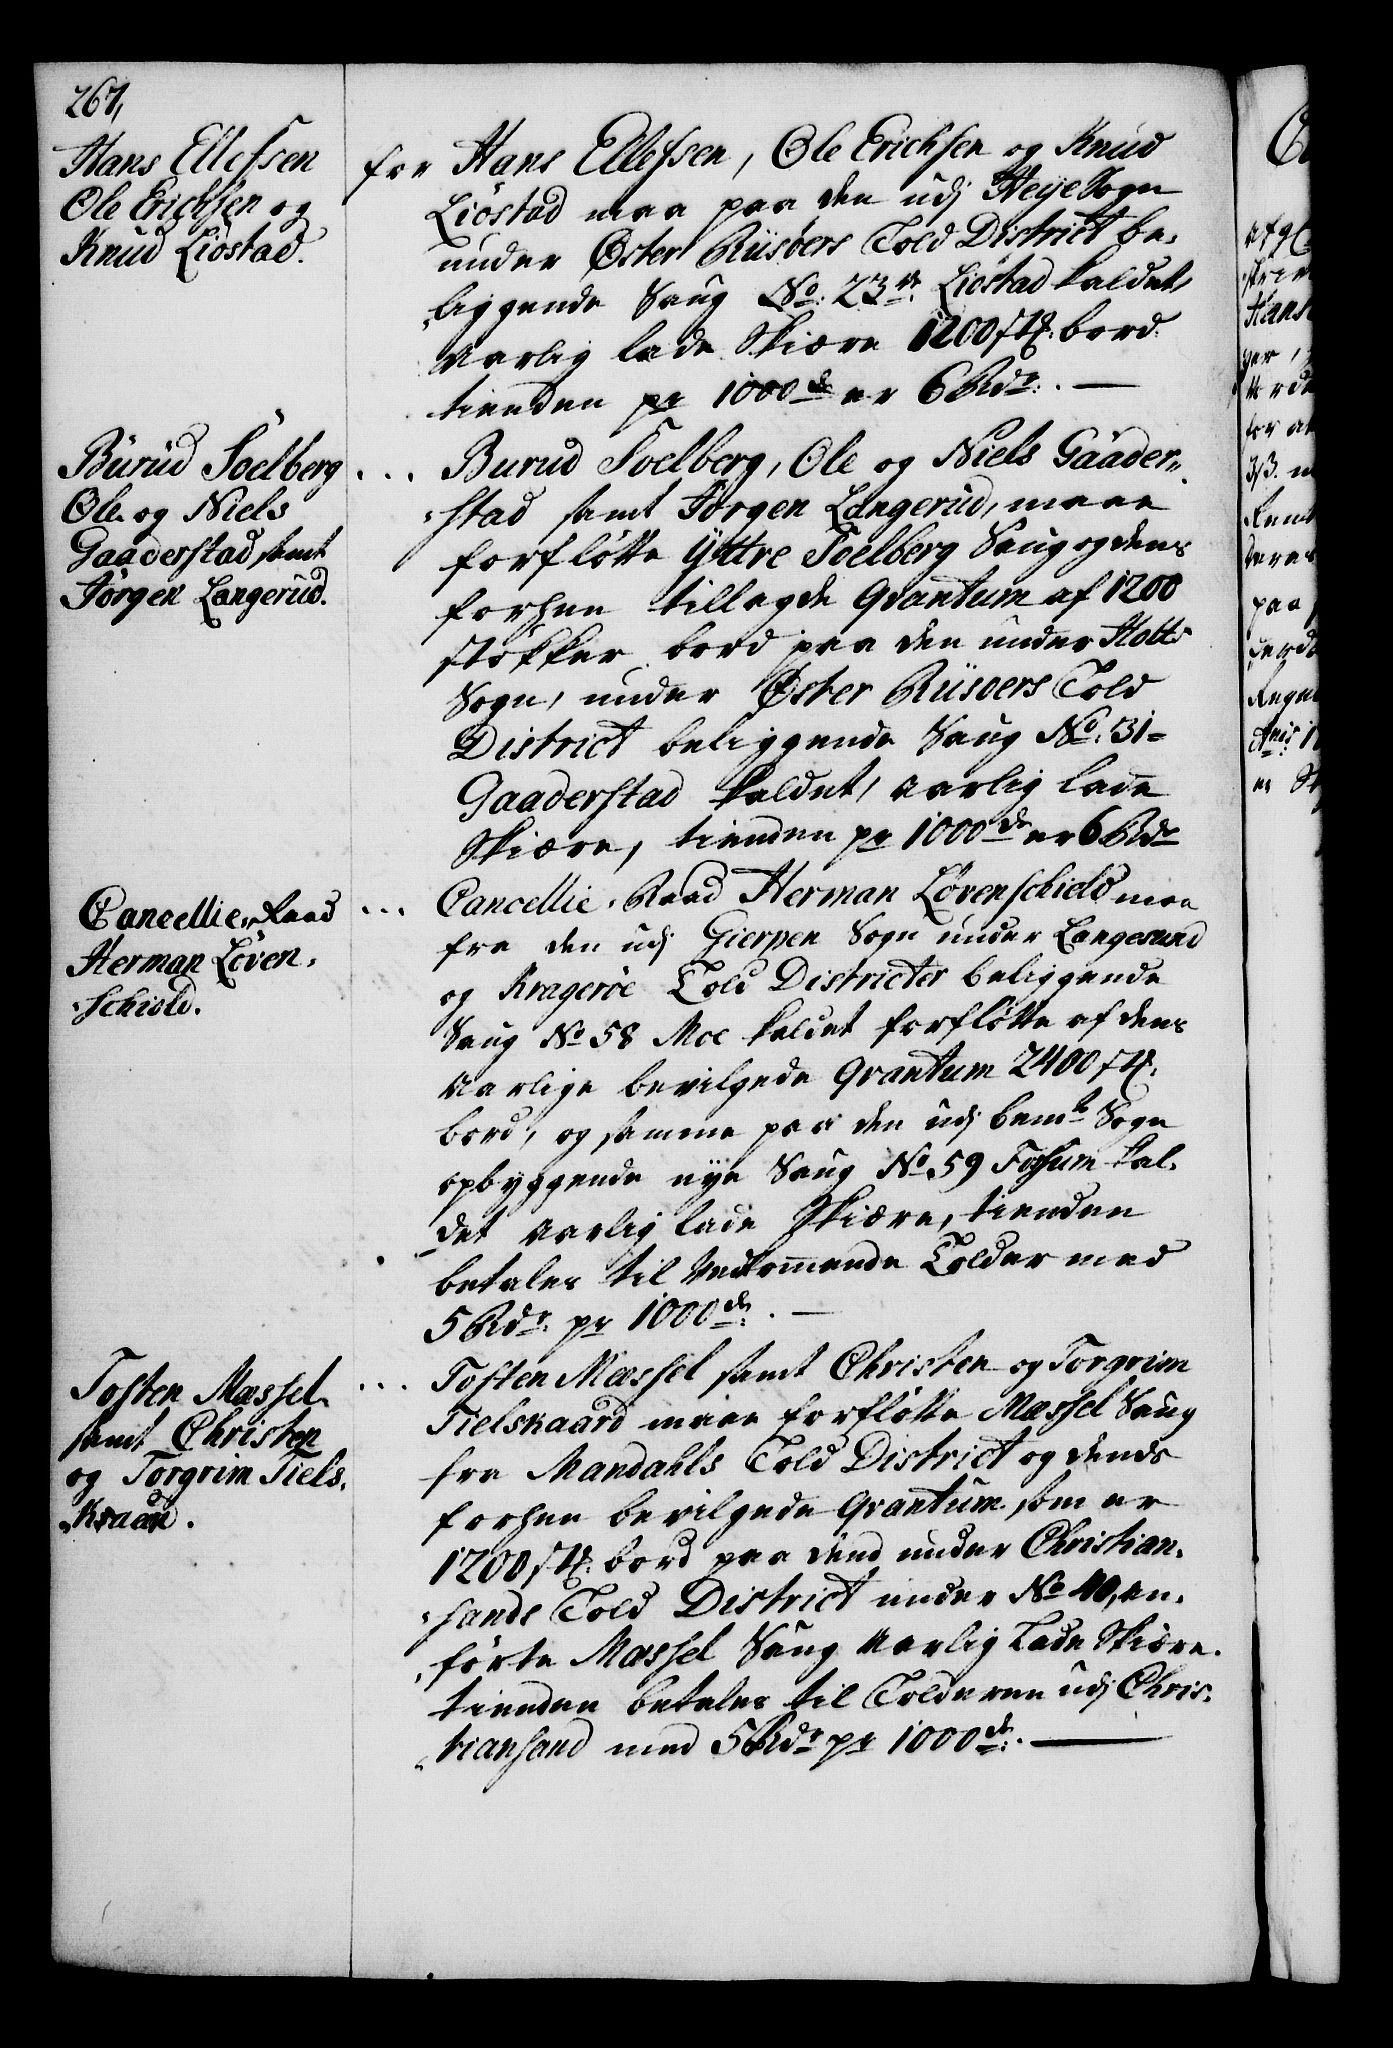 267,
Hans Ellefsen
Ole Erichsen og
Knud Liöstad.
for Hans Ellefsen, Ole Erichsen og Knud
Liöstad maa paa den udj Heÿe Sogn
under Öster Riisöers Told District be-
liggende Saug No. 23de Liöstad kaldet,
aarlig lade Skiære 1200 stk. bord
tienden pr 1000de er 6 Rdr. —
Burud Soelberg
Ole og Niels
Gaaderstad samt
Jörgen Langerud.
... Burud Soelberg, Ole og Niels Gaader-
stad samt Jörgen Langerud, maae
forflötte Ÿttre Soelberg Saug og dens
forhen tillagde Qvantum af 1200
stökker bord paa den under Holts
Sogn, under Öster Riisöers Told
District beliggende Saug No. 31-
Gaaderstad kaldet, aarlig lade
Skiære, tienden pr 1000de er 6 Rdr
Cancellie Raad
Herman Löven-
schiold.
... Cancellie Raad Herman Lövenschiold maa
fra den udj Gierpen Sogn under Langesund
og Kragerøe Told Districter beliggende
Saug No 58 Moe kaldet forflötte af dens
aarlige bevilgede Qvantum 2400 stk.
bord, og samme paa den udj bemte Sogn
opbyggende nye Saug No. 59 Fossum kal-
det aarlig lade Skiære, tienden
betales til Vedkommende Tolder med
5 Rdr. pr 1000de. —
Tosten Mæssel
samt Christen
og Torgrim Tiels-
... Tosten Mæssel samt Christen og Torgrim
Tielskaard maae forflötte Mæssel Saug
fra Mandahls Told District og dends
forhen bevilgede Qvantum som er
1200 stk. bord paa dend under Christian-
sands Told District under No 40, an-
förte Mæssel Saug Aarlig Lade Skiære.
tienden betales til Tolderen udj Chris-
tiansand med 5 Rdr pr 1000de. —